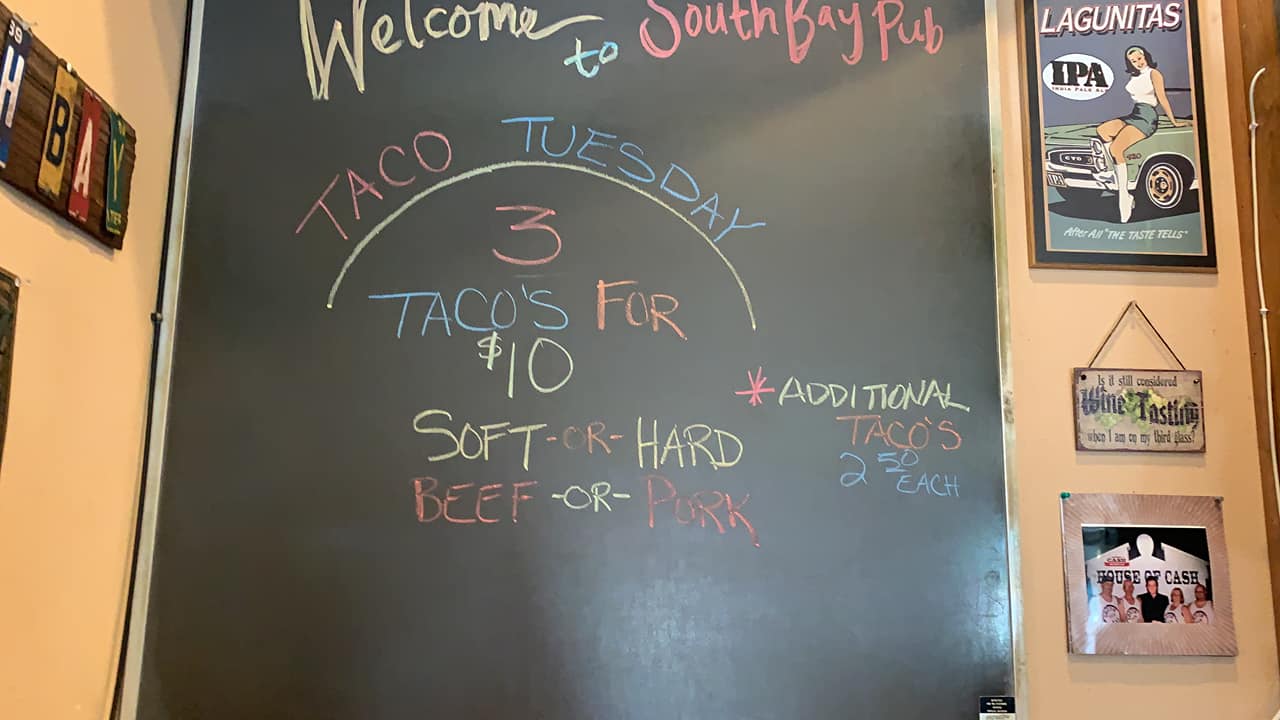 Welcome to South Bay Pub
TACO TUESDAY
3
TACO'S FOR
$10
SOFT -OR- HARD
BEEF -OR- PORK
*ADDITIONAL
TACO'S
2 50
EACH
39
H
BAY
LAGUNITAS
IPA
INDIA PALE ALE
GTO
After All "THE TASTE TELLS"
Is it still considered
Wine Tasting
when I am on my third glass?
CASH
HOUSE OF CASH